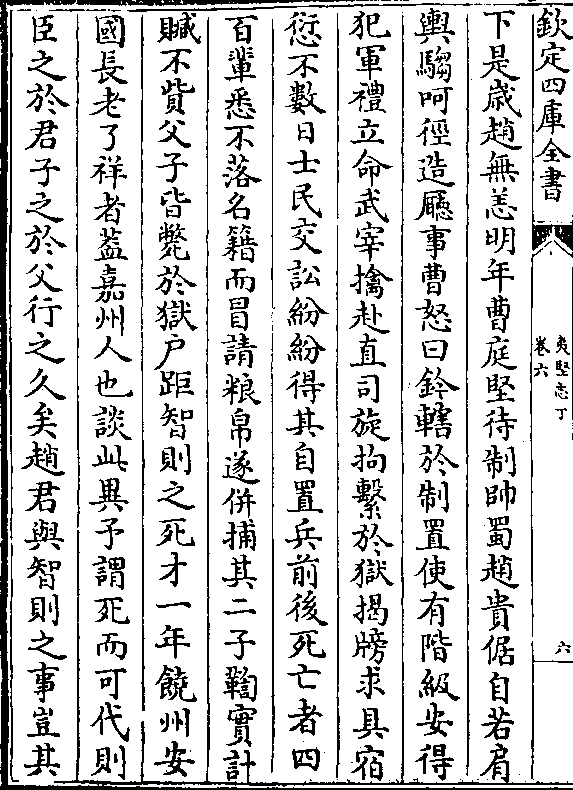 欽定四庫全書
夷堅志丁
卷六
六
下是歲趙無恙明年曹庭堅待制帥蜀趙貴倨自若肩
輿騶呵徑造廳事曹怒曰鈐轄於制置使有階級安得
犯軍禮立命武宰擒赴直司旋拘繫於獄揭牓求其宿
愆不數日士民交訟紛紛得其自置兵前後死亡者四
百輩悉不落名籍而冒請粮帛遂併捕其二子鞫實計
贓不貲父子皆斃於獄户距智則之死才一年饒州安
國長老了祥者葢嘉州人也談此異予謂死而可代則
臣之於君子之於父行之久矣趙君與智則之事豈其